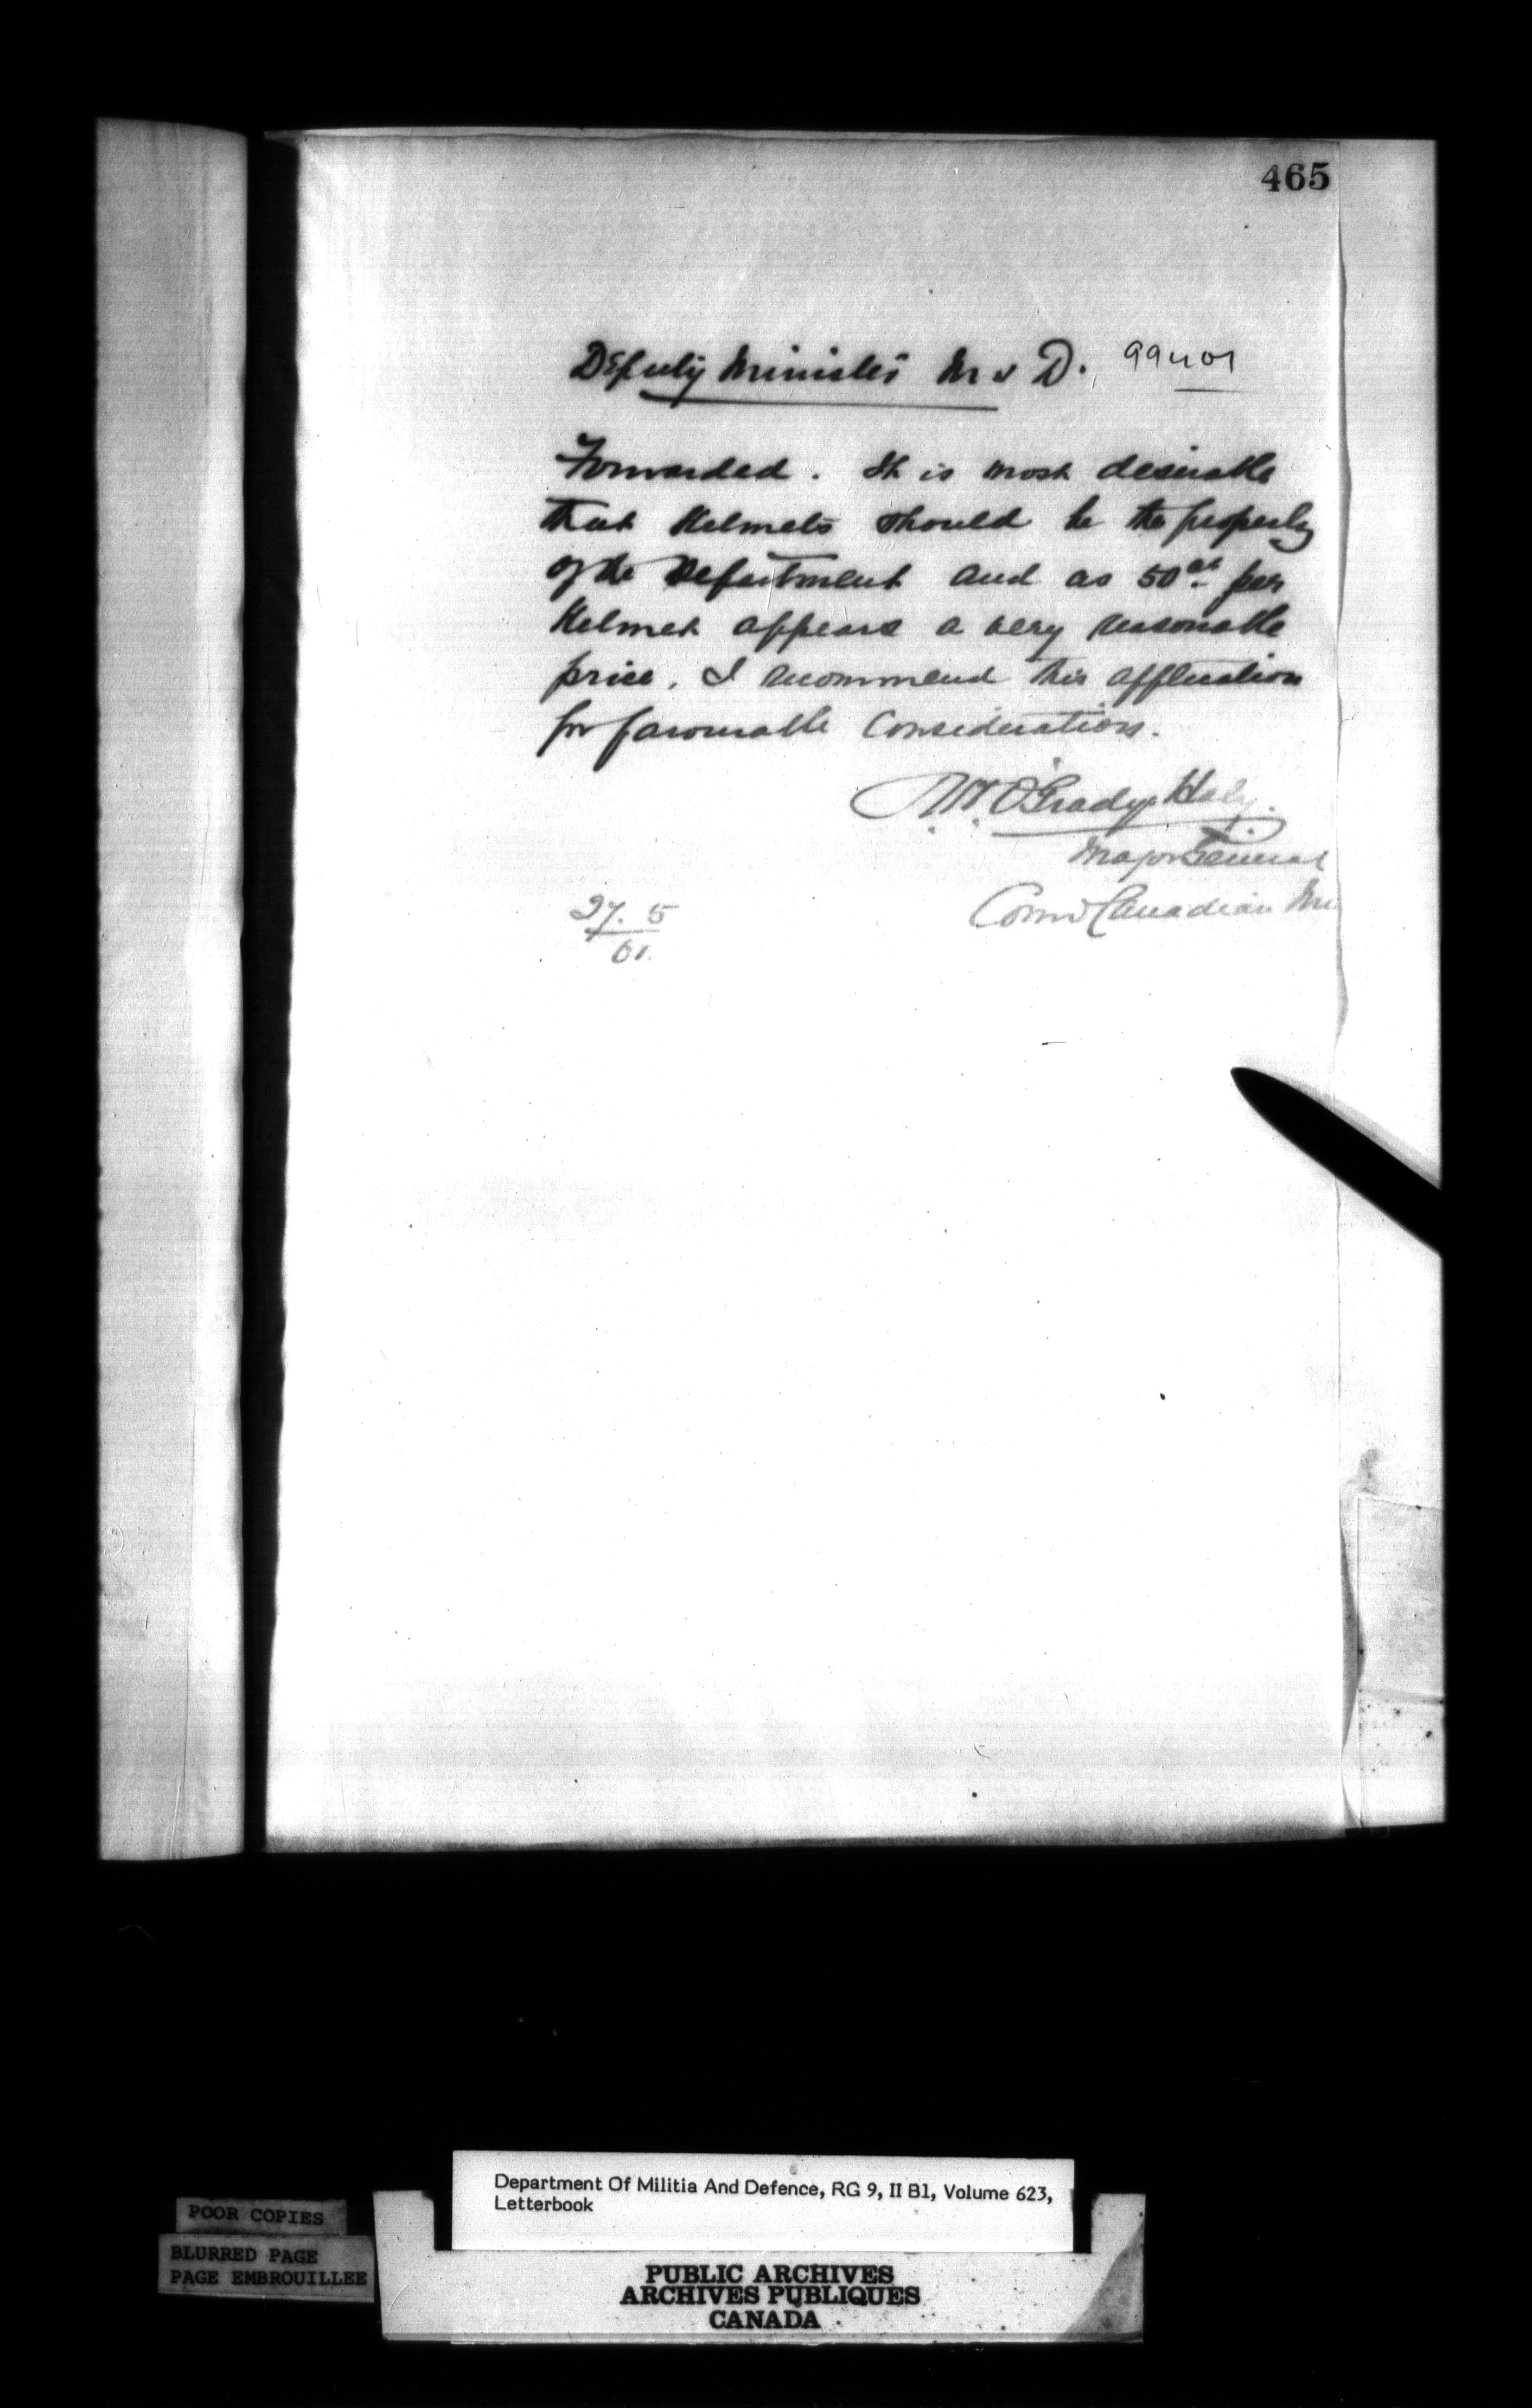 465
Deputy Minister M & D. 99401
Forwarded. It is most desirable
that Helmets should be the property
of the Department and as 50ct per
Helmet appears a very reasonable
price, I recommend this application
for favourable Consideration.
O'Grady Haly.
Major General
Comd Canadian Mi
27. 5
01.
Department Of Militia And Defence, RG 9, II B1, Volume 623,
Letterbook
POOR COPIES
BLURRED PAGE
PAGE EMBROUILLEE
PUBLIC ARCHIVES
ARCHIVES PUBLIQUES
CANADA